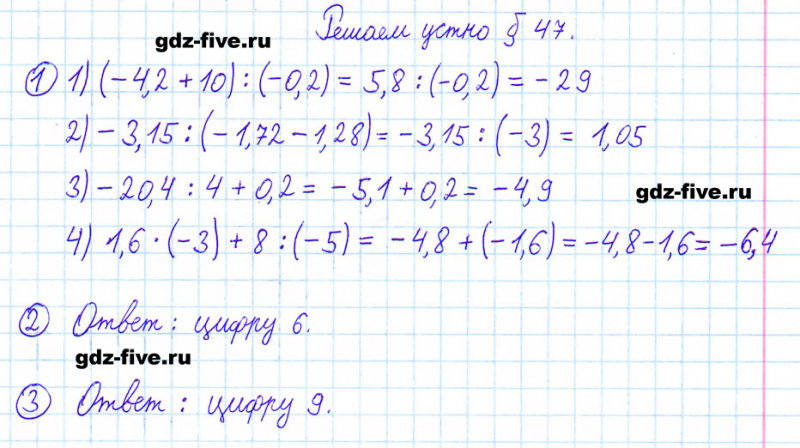 Решаем устно § 47.
gdz-five.ru
① 1) (-4,2 + 10) : (-0,2) = 5,8 : (-0,2) = -29
2) -3,15 : (-1,72 - 1,28) = -3,15 : (-3) = 1,05
3) -20,4 : 4 + 0,2 = -5,1 + 0,2 = -4,9
gdz-five.ru
4) 1,6 · (-3) + 8 : (-5) = -4,8 + (-1,6) = -4,8 - 1,6 = -6,4
② Ответ : цифру 6.
gdz-five.ru
③ Ответ : цифру 9.